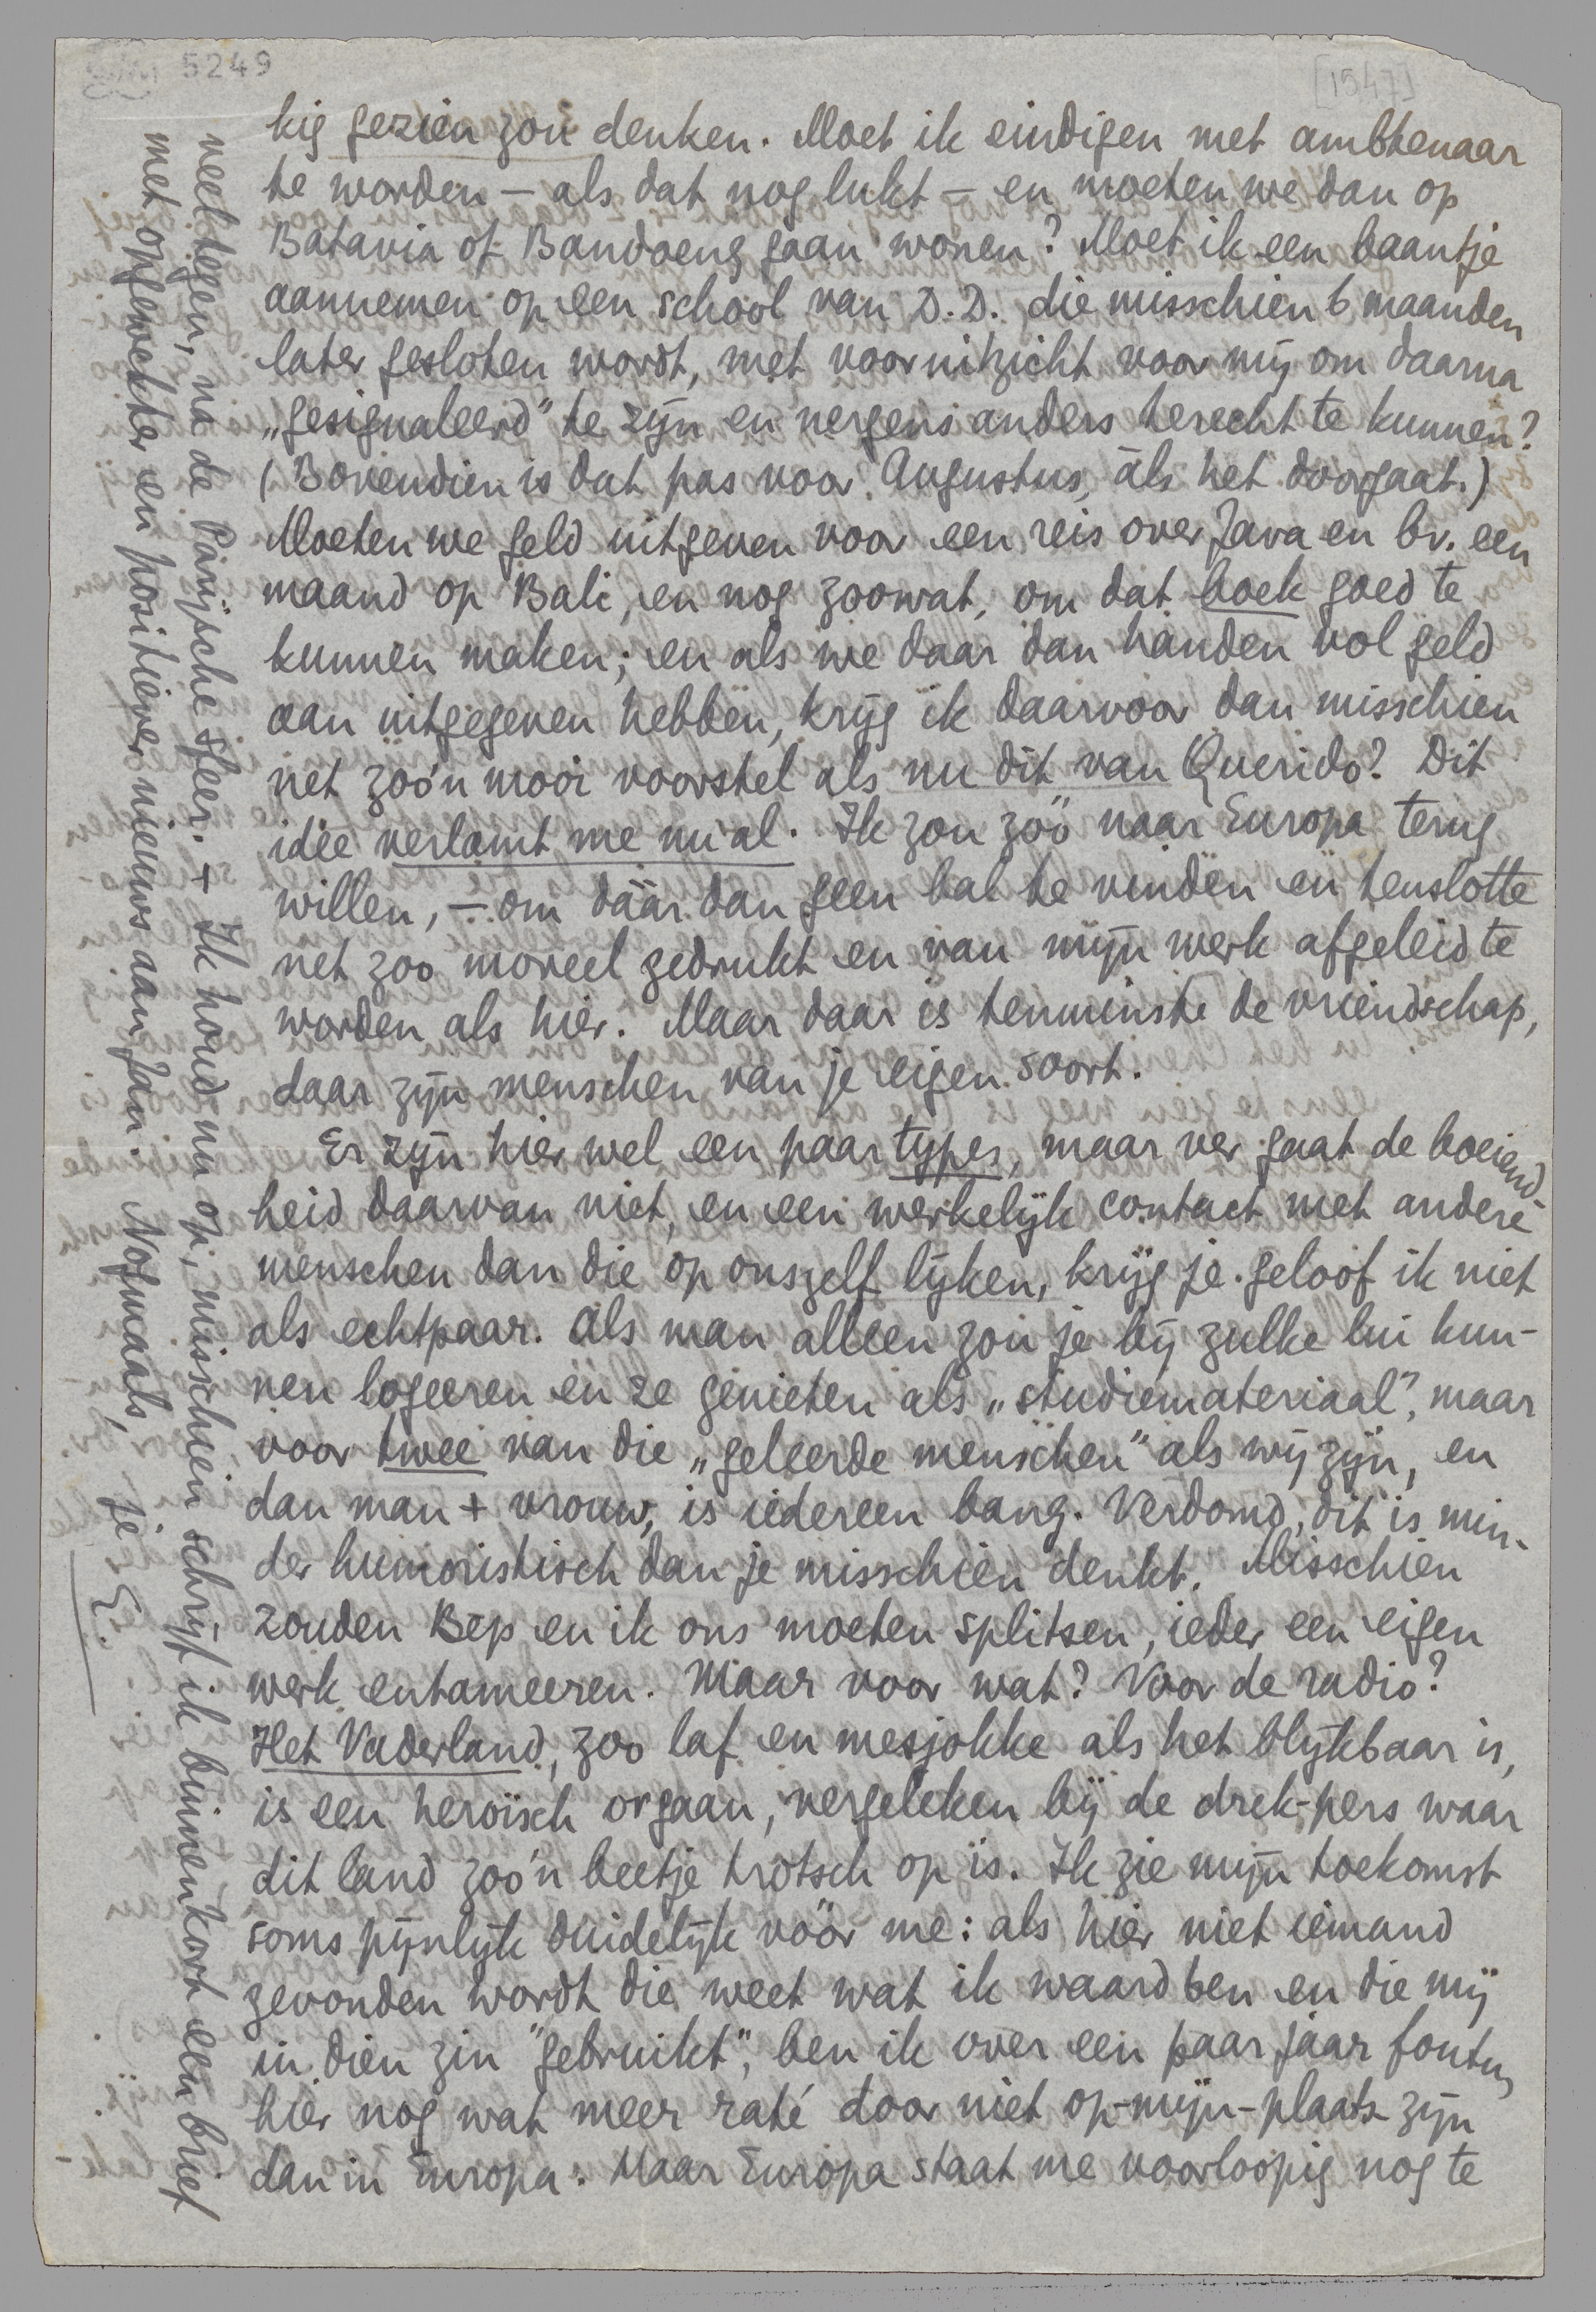 5249
[1547]
kig gezien zou denken. Moet ik eindigen met ambtenaar
te worden – als dat nog lukt – en moeten we dan op
Batavia of Bandoeng gaan wonen? Moet ik een baantje
aannemen op een school van D.D. die misschien 6 maanden
later gesloten wordt, met vooruitzicht voor mij om daarna
„gesignaleerd" te zijn en nergens anders terecht te kunnen?
(Bovendien is dat pas voor Augustus, àls het doorgaat.)
Moeten we geld uitgeven voor een reis over Java en bv. een
maand op Bali, en nog zoowat, om dat boek goed te
kunnen maken; en als we daar dan handen vol geld
aan uitgegeven hebben, krijg ik daarvoor dan misschien
net zoo'n mooi voorstel als nu dit van Querido? Dit
idee verlamt me nu al. Ik zou zóó naar Europa terug
willen, – om dáár dan geen bal te vinden en tenslotte
net zoo moreel gedrukt en van mijn werk afgeleid te
worden als hier. Maar daar is tenminste de vriendschap,
daar zijn menschen van je eigen soort.
Er zijn hier wel een paar types, maar ver gaat de boeiend-
heid daarvan niet, en een werkelijk contact met andere
menschen dan die op onszelf lijken, krijg je geloof ik niet
als echtpaar. Als man alleen zou je bij zulke lui kun-
nen logeeren en ze genieten als „studiemateriaal", maar
voor twee van die „geleerde menschen" als wij zijn, en
dan man + vrouw, is iedereen bang. Verdomd, dit is min-
der humoristisch dan je misschien denkt. Misschien
zouden Bep en ik ons moeten splitsen, ieder een eigen
werk entameeren. Maar voor wat? Voor de radio?
Het Vaderland, zoo laf en mesjokke als het blijkbaar is,
is een heroïsch orgaan, vergeleken bij de drek-pers waar
dit land zoo'n beetje trotsch op is. Ik zie mijn toekomst
soms pijnlijk duidelijk vóór me: als hier niet iemand
gevonden wordt die weet wat ik waard ben en die mij
in dien zin "gebruikt", ben ik over een paar jaar foutu,
hier nog wat meer raté door niet op-mijn-plaats zijn
dan in Europa. Maar Europa staat me voorloopig nog te
veel tegen, na de Parijsche sfeer. + Ik houd nu op; misschien schrijf ik binnenkort een brief
met opgewekter en positiever nieuws aan Jan. Nogmaals, je E.